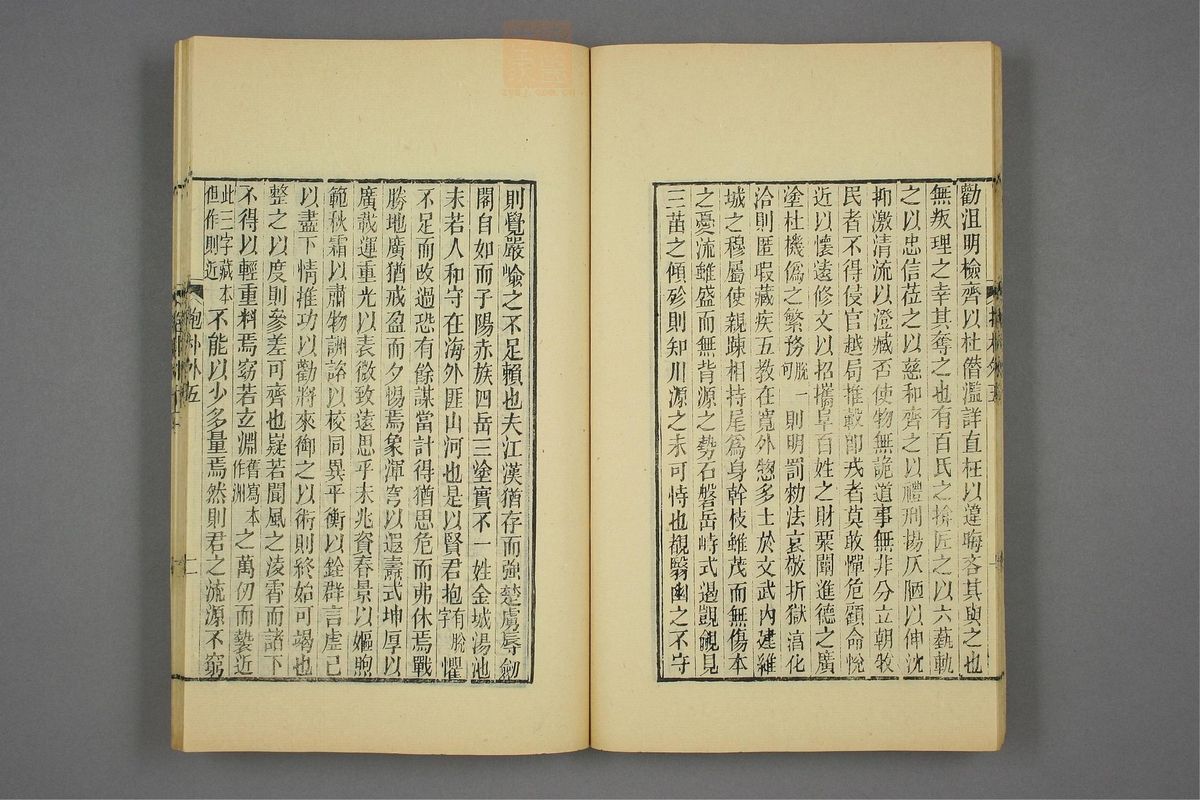 勸沮明檢齊以杜僭濫詳直枉以違晦吝其與之也
無叛理之幸其奪之也有百氏之揜匠之以六藝軌
之以忠信莅之以慈和齊之以禮刑揚仄陋以伸沈
抑激清流以澄臧否使物無詭道事無非分立朝牧
民者不得侵官越局推轂即戎者莫敢憚危顧命悅
近以懷遠修文以招攜阜百姓之財粟闡進德之廣
塗杜機僞之繁務脫可一則明罰勑法哀敬折獄淳化
洽則匿瑕藏疾五教在寬外惣多士於文武內建維
城之穆屬使親疎相持尾爲身幹枝雖茂而無傷本
之憂流雖盛而無背源之勢石磐岳峙式遏覬覦見
三苗之傾殄則知川源之未可恃也覩翳幽之不守
則覺嚴嶮之不足賴也夫江漢猶存而強楚虜辱劔
閣自如而子陽赤族四岳三塗實不一姓金城湯池
未若人和守在海外匪山河也是以賢君抱有脫字懼
不足而改過恐有餘謀當計得猶思危而弗休焉戰
勝地廣猶戒盈而夕惕焉象渾穹以遐燾式坤厚以
廣載運重光以表微致遠思乎未兆資春景以嫗煦
範秋霜以肅物詶諮以校同異平衡以銓群言虛己
以盡下情推功以勸將來御之以術則終始可竭也
整之以度則參差可齊也嶷若閬風之凌霄而諸下
不得以輕重料焉窈若玄淵舊寫本作洲之萬仞而藝近
此三字藏本但作則近不能以少多量焉然則君之流源不窮
抱朴外五
十一